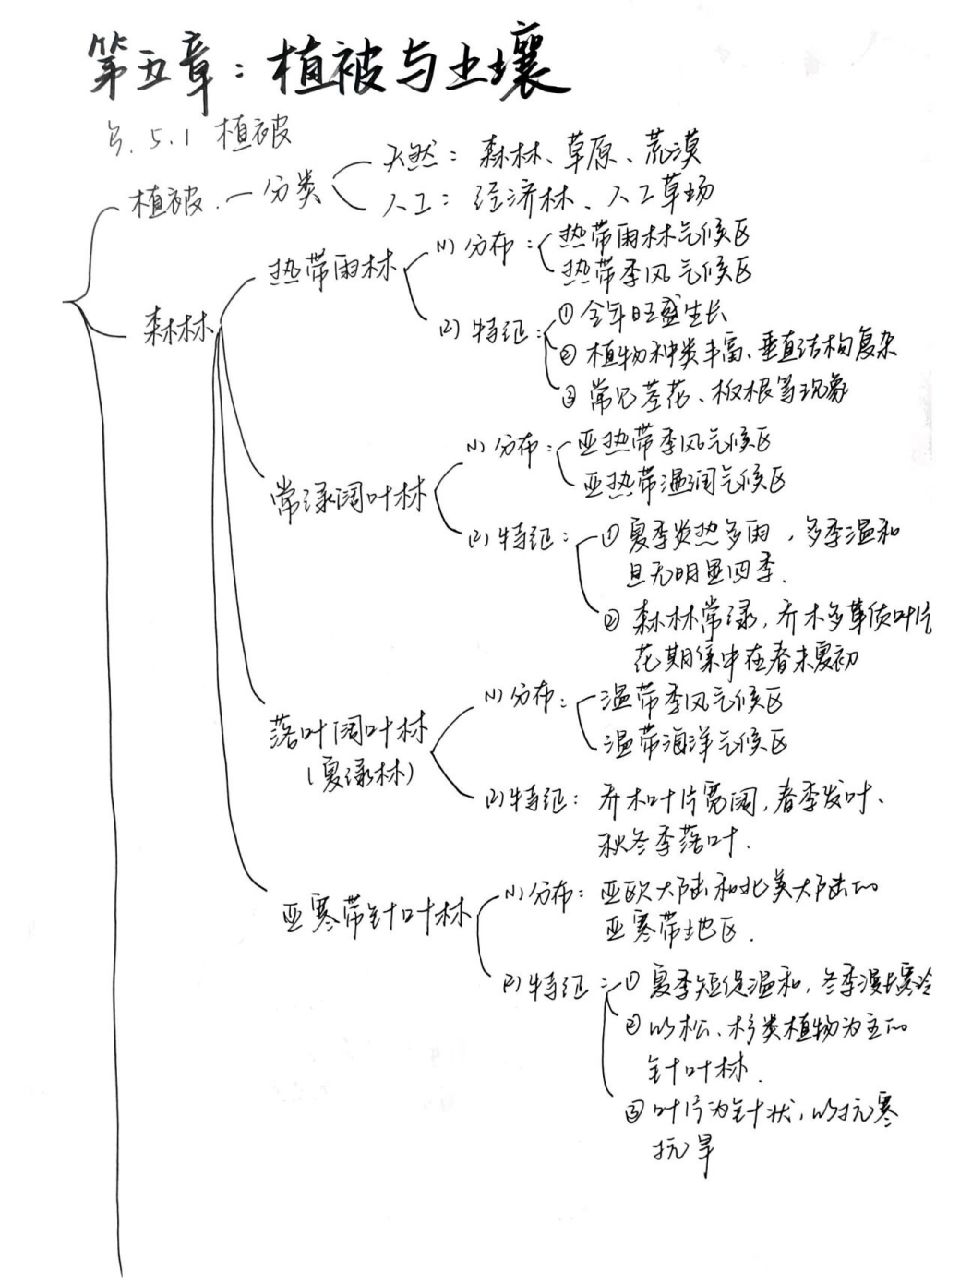 第五章：植被与土壤
§.5.1 植被
植被 分类
天然：森林、草原、荒漠
人工：经济林、人工草场
森林
热带雨林
(1) 分布：热带雨林气候区
热带季风气候区
(2) 特征：① 全年旺盛生长
② 植物种类丰富、垂直结构复杂
③ 常见茎花、板根等现象
常绿阔叶林
(1) 分布：亚热带季风气候区
亚热带湿润气候区
(2) 特征：① 夏季炎热多雨，冬季温和
且无明显四季.
② 森林常绿，乔木多革质叶片
花期集中在春末夏初
落叶阔叶林
(夏绿林)
(1) 分布：温带季风气候区
温带海洋气候区
(2) 特征：乔木叶片宽阔，春季发叶、
秋冬季落叶.
亚寒带针叶林
(1) 分布：亚欧大陆和北美大陆的
亚寒带地区.
(2) 特征：① 夏季短促温和，冬季漫长寒冷
② 以松、杉类植物为主的
针叶林.
③ 叶片为针状，以抗寒
抗旱